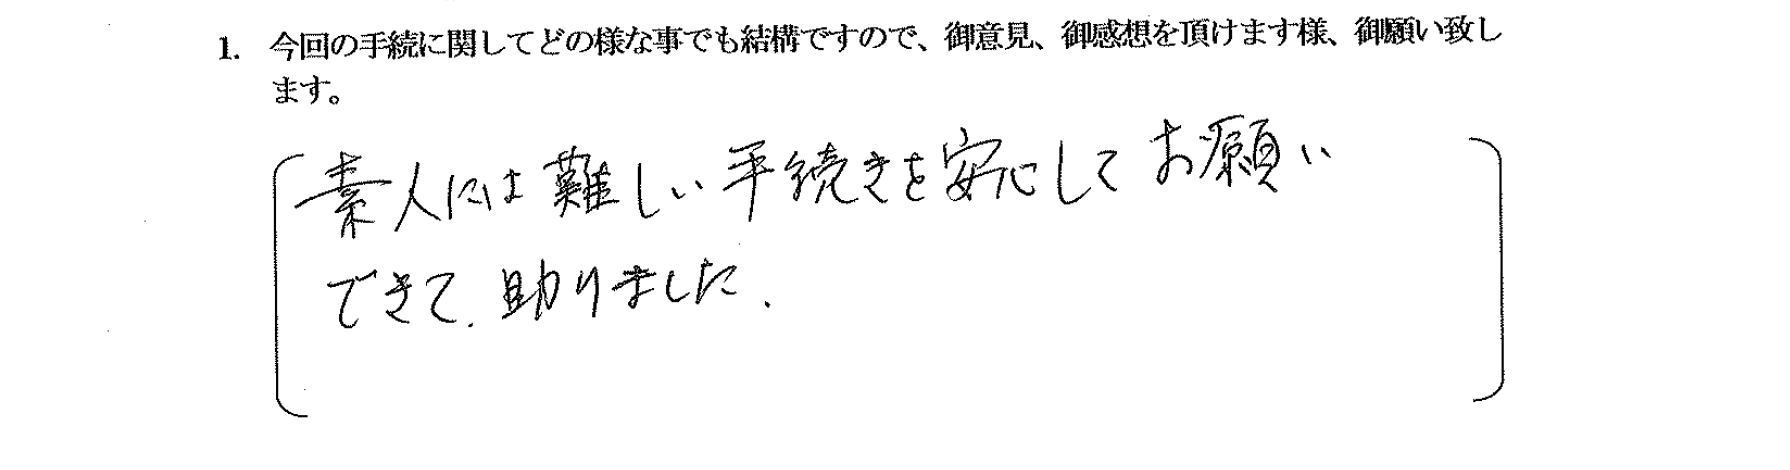 1. 今回の手続に関してどの様な事でも結構ですので、御意見、御感想を頂けます様、御願い致し
ます。
素人には難しい手続きを安心してお願い
できて、助りました.